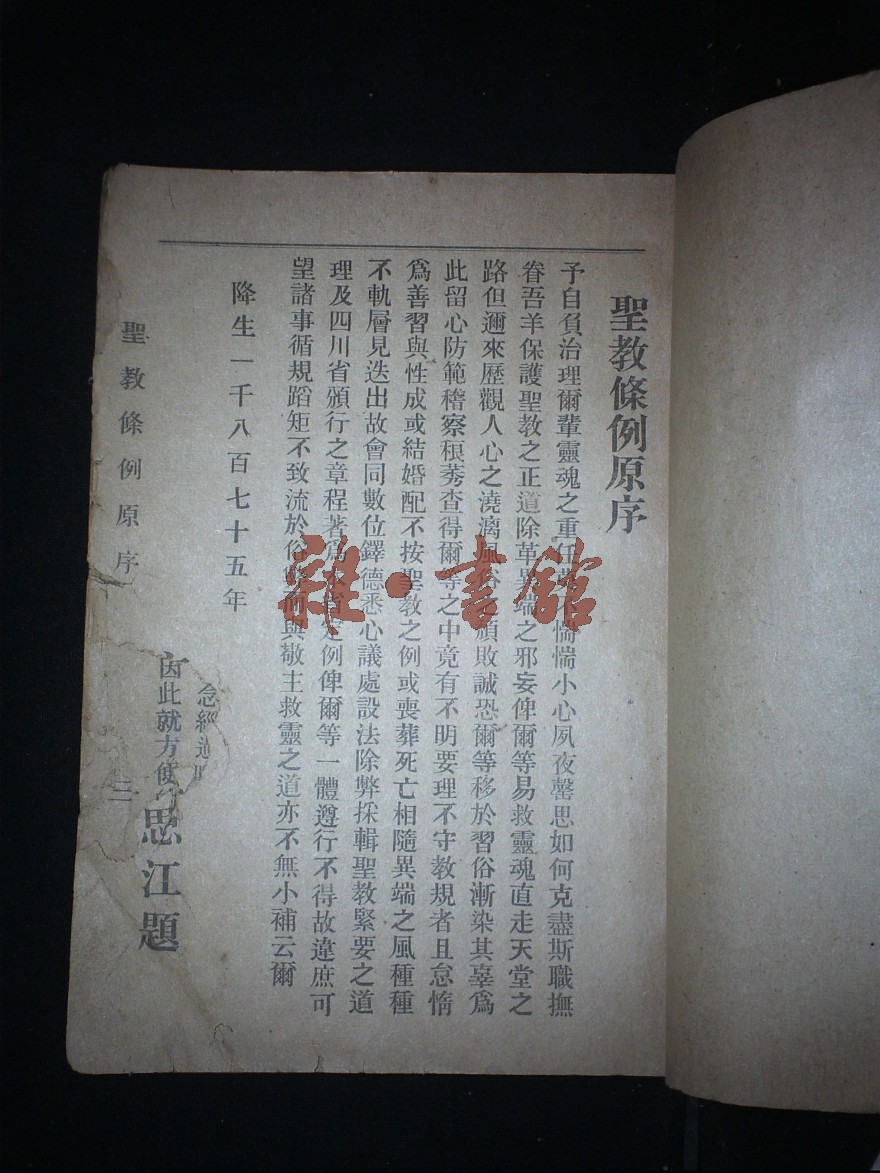 聖教條例原序
予自負治理爾輩靈魂之重任惴惴小心夙夜罄思如何克盡斯職撫
眷吾羊保護聖教之正道除革異端之邪妄俾爾等易救靈魂直走天堂之
路但邇來歷觀人心之澆漓風俗之頹敗誠恐爾等移於習俗漸染其辜爲
此留心防範稽察根莠查得爾等之中竟有不明要理不守教規者且怠惰
爲善習與性成或結婚配不按聖教之例或喪葬死亡相隨異端之風種種
不軌層見迭出故會同數位鐸德悉心議處設法除弊採輯聖教緊要之道
理及四川省頒行之章程著爲定例俾爾等一體遵行不得故違庶可
望諸事循規蹈矩不致流於俗而與敬主救靈之道亦不無小補云爾
降生一千八百七十五年
念經
思江題
因此就方便
聖教條例原序
三
雜·書館